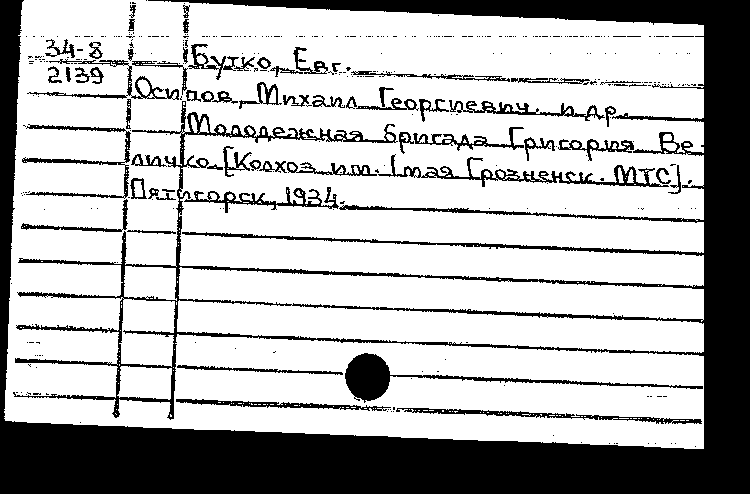 34-8
2139
Бутко, Евг.
Осипов, Михаил Георгиевич. и др.
Молодежная бригада Григория Ве-
личко. [Колхоз им. 1 мая Грозненск. МТС].
Пятигорск, 1934.